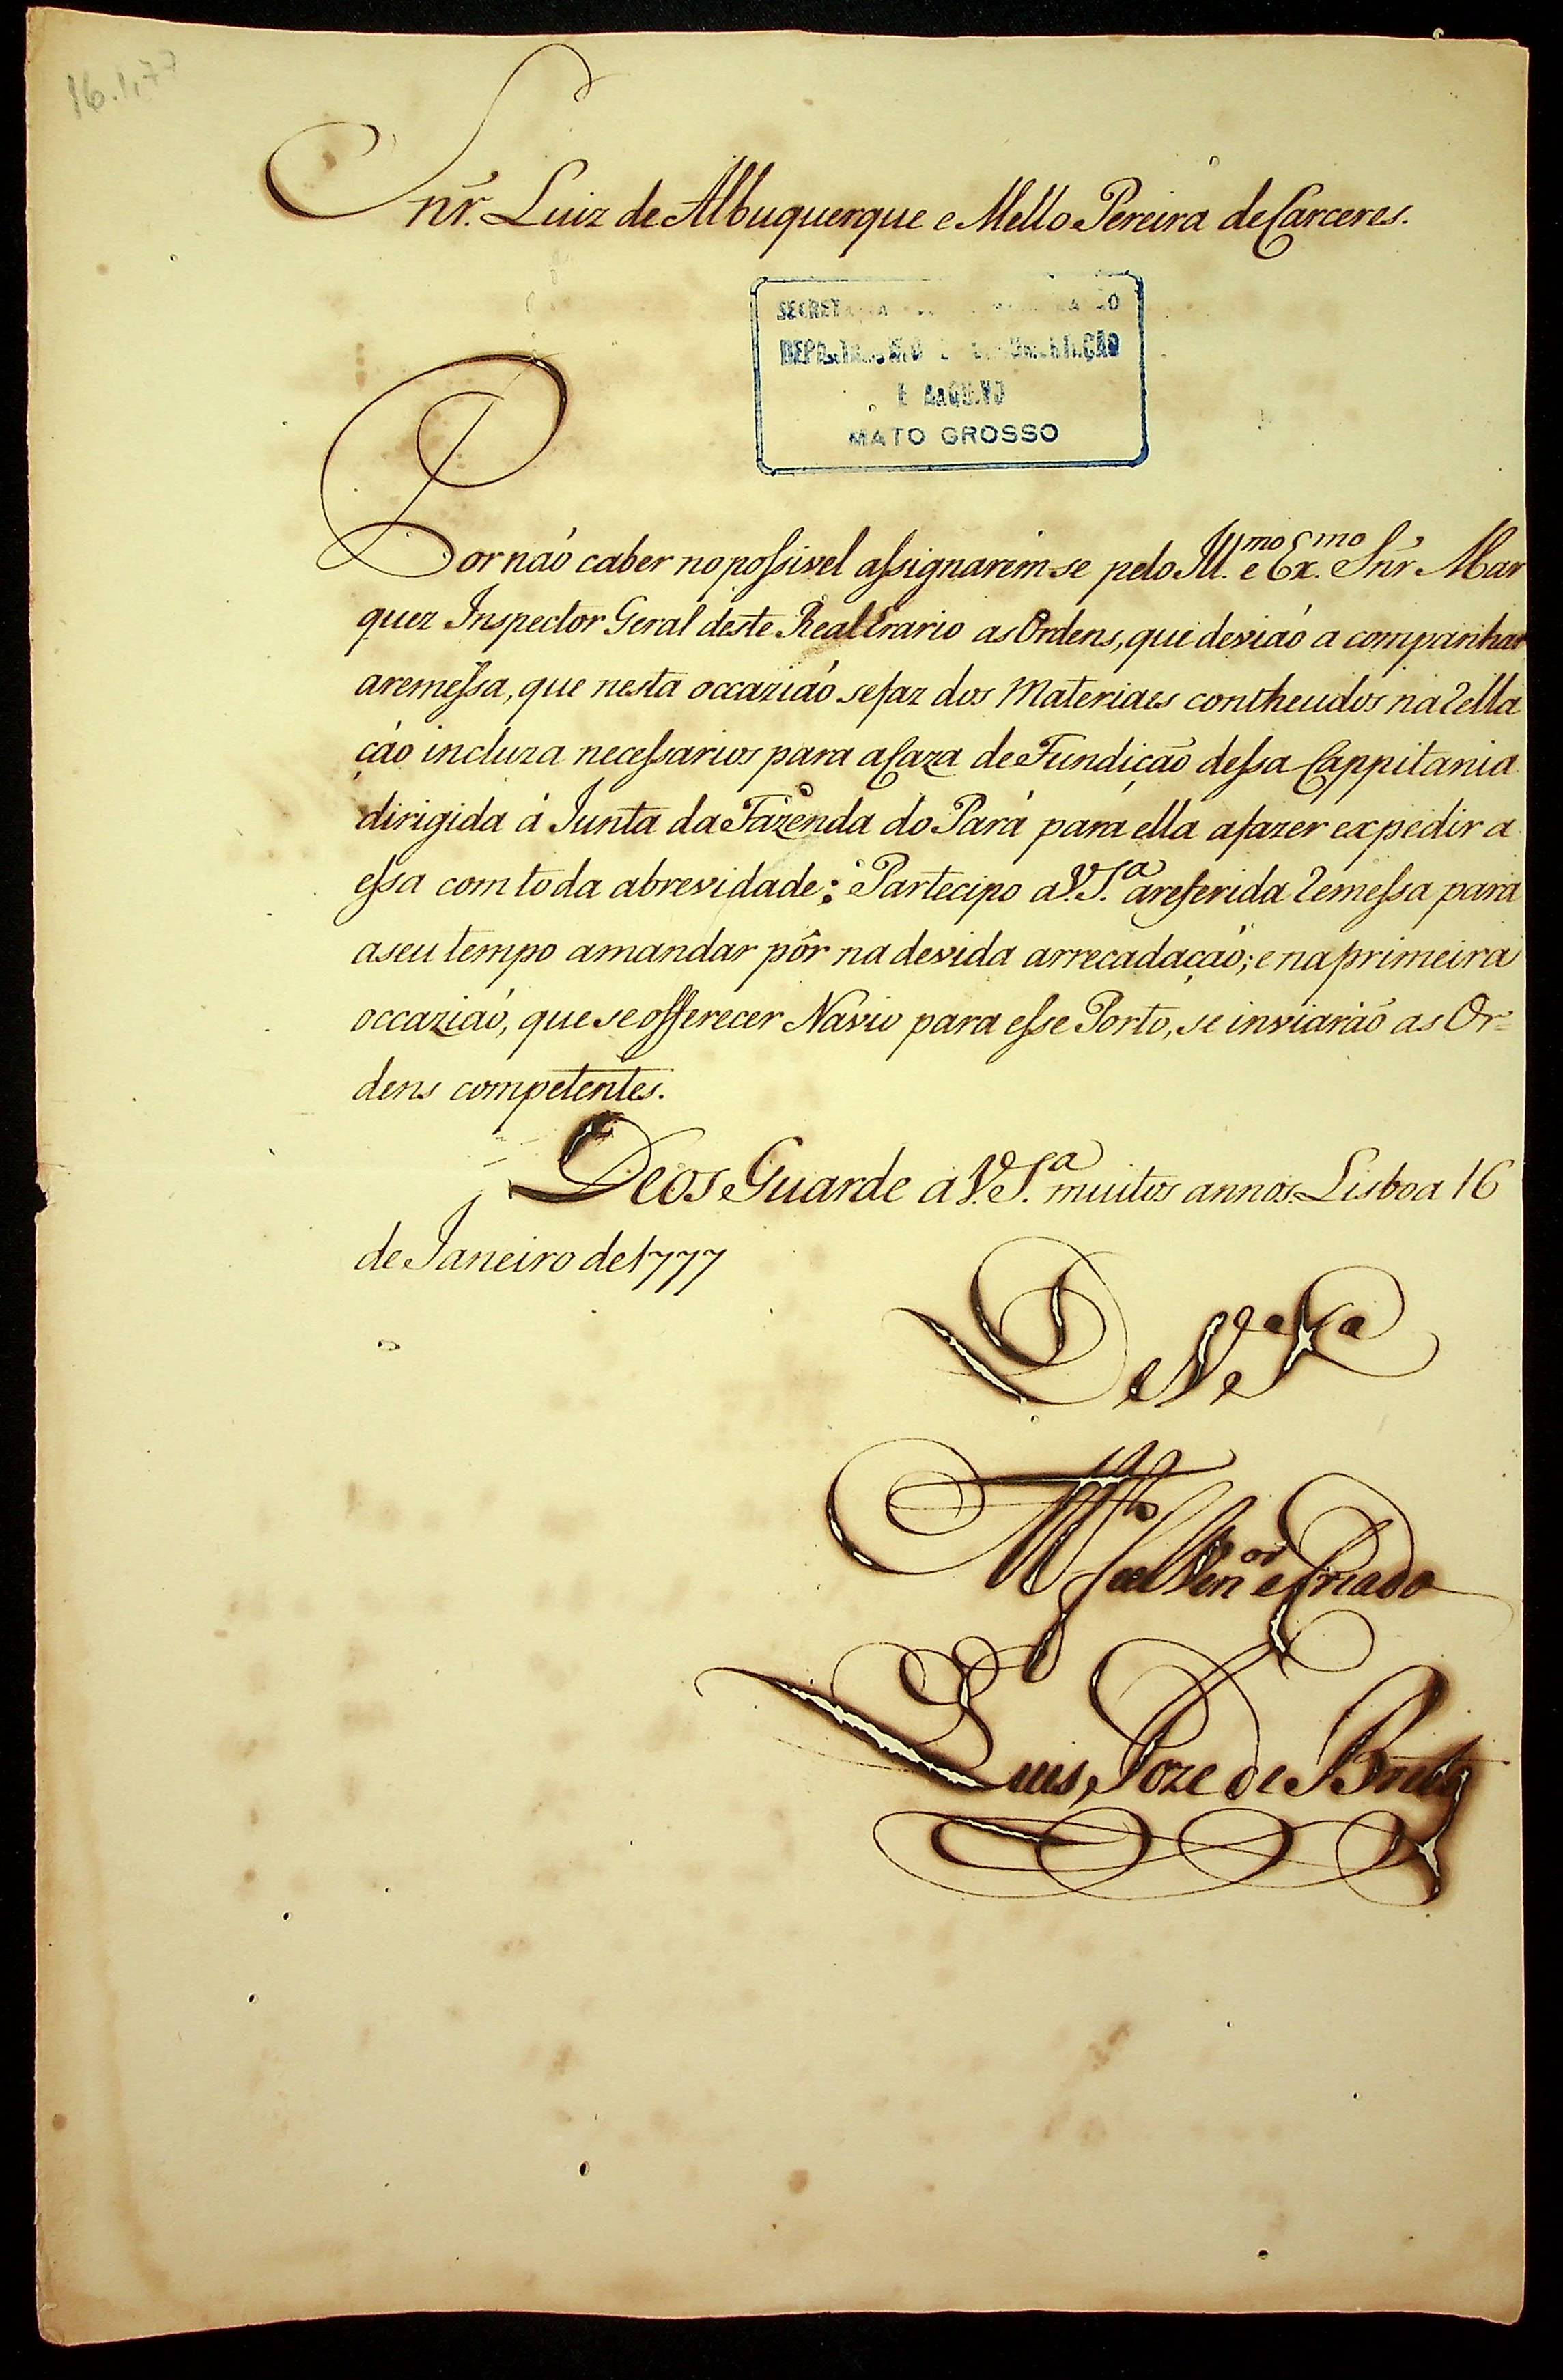 16.1.77
Snr. Luiz de Albuquerque e Mello Pereira de Carceres.
MATO GROSSO
Por não caber no possivel assignarem se pelo Ill.mo e Ex.mo Snr Mar
quez Inspector Geral deste Real Erario as Ordens, que devião a companhar
aremessa, que nesta occazião sefaz dos Materiaes contheudos na Rella
ção incluza necessarios para a Caza de Fundição dessa Cappitania
dirigida á Junta da Fazenda do Pará para ella afazer expedir a
essa com toda abrevidade: Partecipo a V. S.a areferida Remessa para
aseu tempo amandar pôr na devida arrecadação; e na primeira
occazião, que se offerecer Navio para esse Porto, se inviarão as Or=
dens competentes.
Deos Guarde a V. S.a muitos annos. Lisboa 16
de Janeiro de 1777
De V. S.a
M.to Ven.or e Criado
Luis Joze de Brito